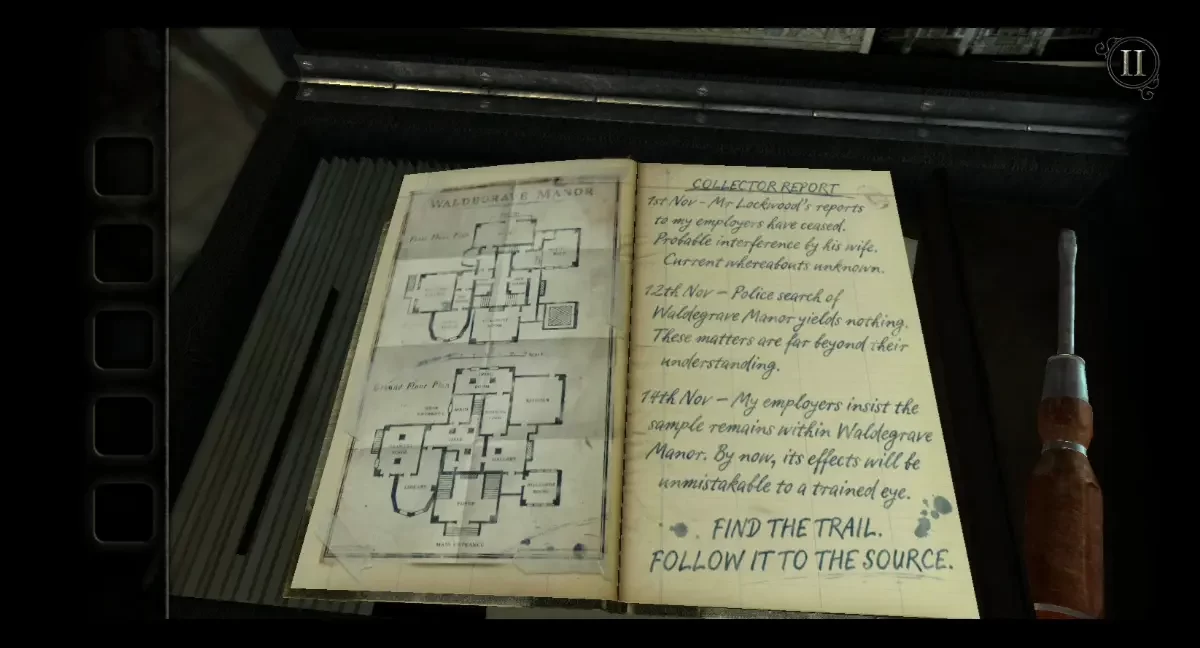 II
WALDEGRAVE MANOR
First Floor Plan
Ground Floor Plan
KITCHEN
GALLERY
LIBRARY
FOYER
MAIN ENTRANCE
COLLECTOR REPORT
1st Nov - Mr Lockwood's reports
to my employers have ceased.
Probable interference by his wife.
Current whereabouts unknown.
12th Nov - Police search of
Waldegrave Manor yields nothing.
These matters are far beyond their
understanding.
14th Nov - My employers insist the
sample remains within Waldegrave
Manor. By now, its effects will be
unmistakable to a trained eye.
FIND THE TRAIL.
FOLLOW IT TO THE SOURCE.